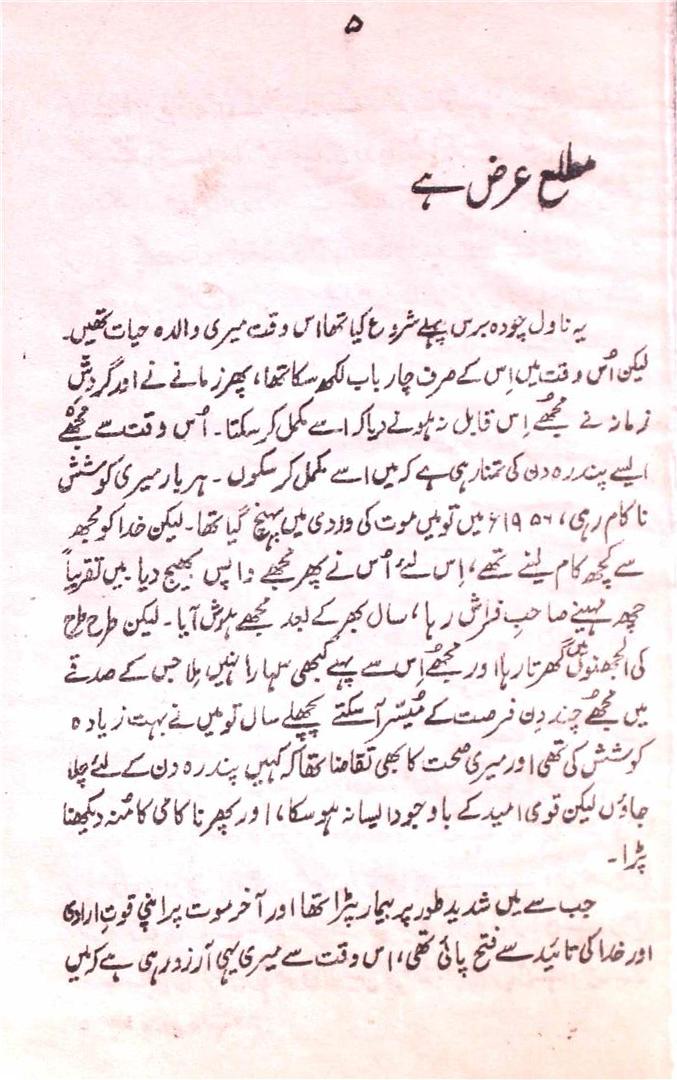 ۵
مطلع عرض ہے
یہ ناول چودہ برس پہلے شروع کیا تھا اس وقت میری والدہ حیات تھیں۔
لیکن اُس وقت میں اِس کے صرف چار باب لکھ سکا تھا، پھر زمانے نے اور گردشِ
زمانہ نے مجھے اِس قابل نہ ہونے دیا کہ اسے مکمل کر سکتا۔ اُس وقت سے مجھے
ایسے پندرہ دن کی تمنا رہی ہے کہ میں اسے مکمل کر سکوں۔ ہر بار میری کوشش
ناکام رہی، ۱۹۵۶ء میں تو میں موت کی وادی میں پہنچ گیا تھا۔ لیکن خدا کو مجھ
سے کچھ کام لینے تھے، اِس لئے اُس نے پھر مجھے واپس بھیج دیا میں تقریباً
چھ مہینے صاحبِ فراش رہا، سال بھر کے بعد مجھے ہوش آیا۔ لیکن طرح طرح
کی الجھنوں میں گھرتا رہا اور مجھے اِس سے پہلے کبھی سہارا نہیں ملا جس کے صدقے
میں مجھے چند دن فرصت کے میُسّر آ سکتے پچھلے سال تو میں نے بہت زیادہ
کوشش کی تھی اور میری صحت کا بھی تقاضا تھا کہ کہیں پندرہ دن کے لئے چلا
جاؤں لیکن قوی امید کے باوجود ایسا نہ ہو سکا، اور پھر ناکامی کا مُنہ دیکھنا
پڑا۔
جب سے میں شدید طور پر بیمار پڑا تھا اور آخر موت پر اپنی قوتِ ارادی
اور خدا کی تائید سے فتح پائی تھی، اس وقت سے میری یہی آرزو رہی ہے کہ میں